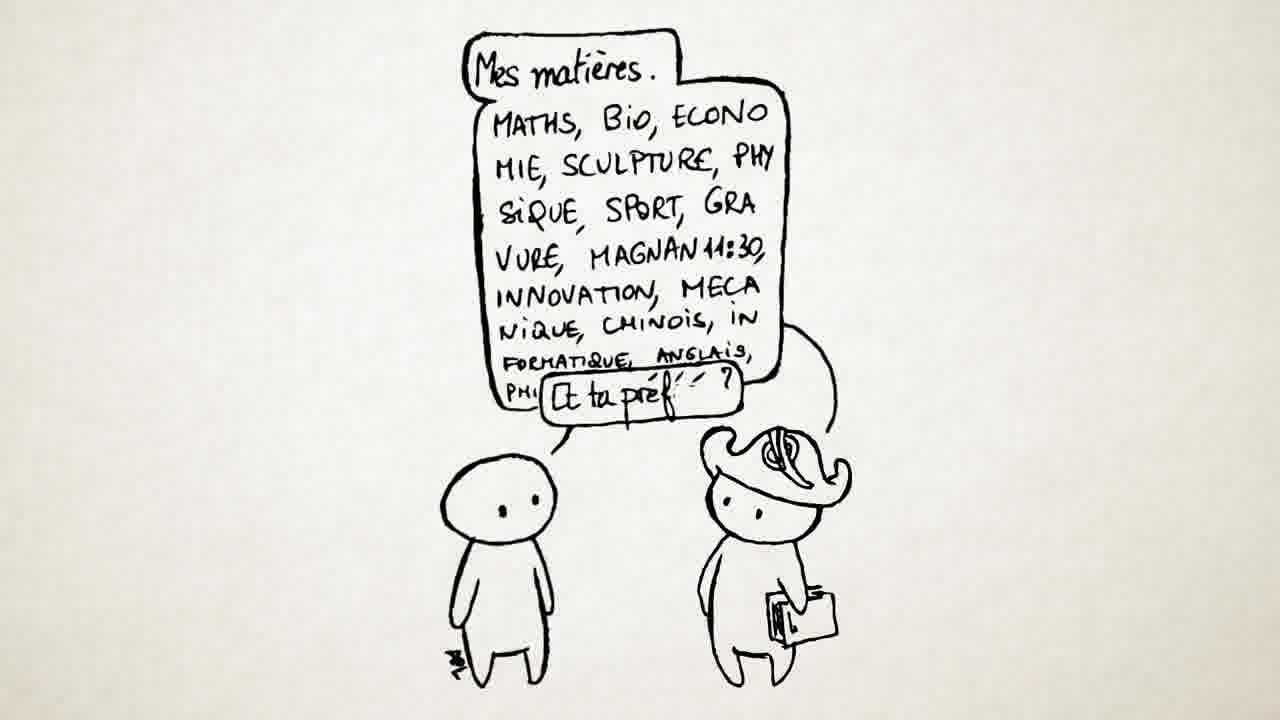 Mes matières.
MATHS, BiO, ECONO
MIE, SCULPTURE, PHY
SiQUE, SPORT, GRA
VURE, MAGNAN 11:30,
INNOVATION, MECA
NiQUE, CHINOiS, iN
FORMATIQUE, ANGLAiS,
PHi
Et ta préf ?